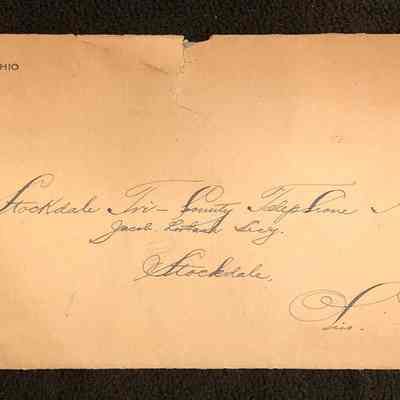 HIO
Stockdale Tri-County Telephone
Jacob Secy.
Stockdale,